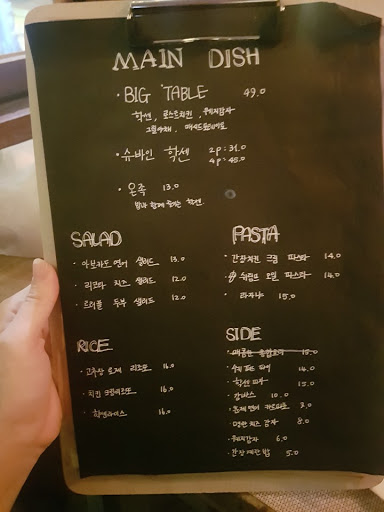 MAIN DISH
· BIG TABLE 49.0
학센, 로스트치킨, 웨지감자
그릴야채, 매쉬드포테이토
· 슈바인 학센 2p : 31.0
4p : 45.0
· 온족 13.0
밥과 함께 즐기는 학센
SALAD
· 아보카도 연어 샐러드 13.0
· 리코타 치즈 샐러드 12.0
· 트러플 두부 샐러드 12.0
PASTA
· 간장치킨 크림 파스타 14.0
쉬림프 오일 파스타 14.0
· 라자냐 15.0
RICE
· 고추장 로제 리조또 16.0
· 치킨 크림리조또 16.0
· 학센라이스 16.0
SIDE
· 매콤한 홍합요리 15.0
· 수제 미트 파이 14.0
· 학센 피자 15.0
· 감바스 10.0
· 훈제연어 카르파쵸 7.0
· 명란 치즈 감자 8.0
· 웨지감자 6.0
· 간장 계란 밥 5.0